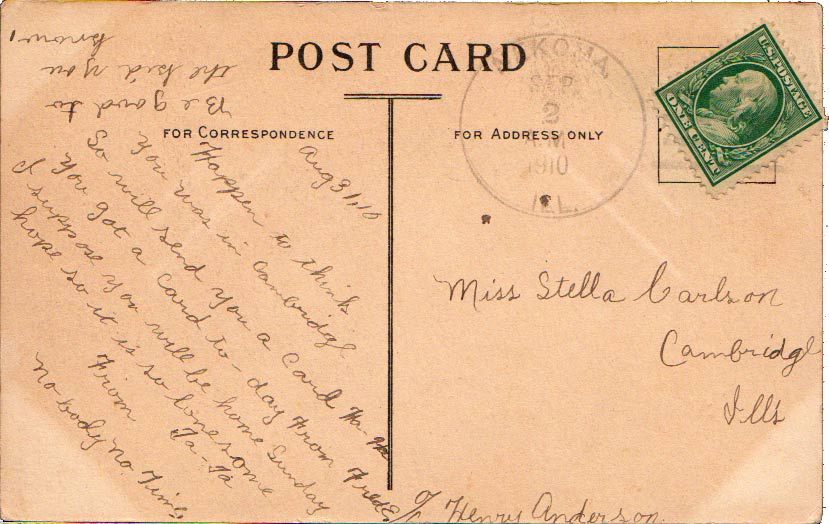 POST CARD
FOR CORRESPONDENCE
FOR ADDRESS ONLY
Aug 31, 10
Happen to think
you was in Cambridge
So will send you a card Ha-Ha
You got a card to-day From Fred E.
I suppose you will be home Sunday
hope so it is so lonesome
From Ta-Ta
No body no Time
Be good to
the kid you
know
SEP.
2
A.M
1910
ILL.
U.S. POSTAGE
ONE CENT
Miss Stella Carlson
Cambridge
Ills
c/o Henry Anderson